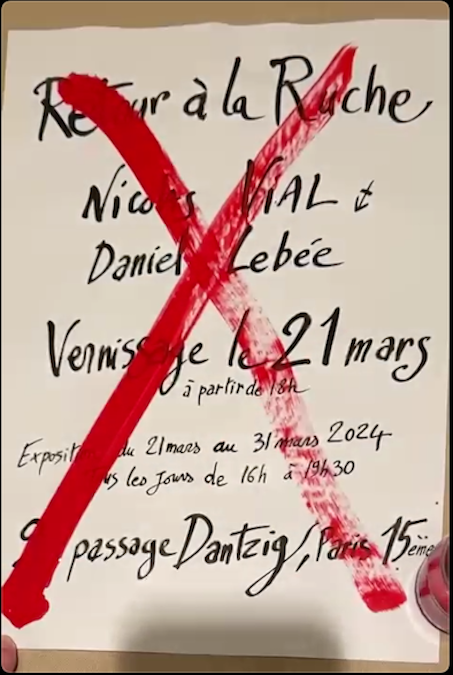 Retour à la Ruche
Nicolas VIAL &
Daniel Lebée
Vernissage le 21 mars
à partir de 18h
Exposition du 21 mars au 31 mars 2024
les jours de 16h à 19h30
passage Dantzig, Paris 15ème